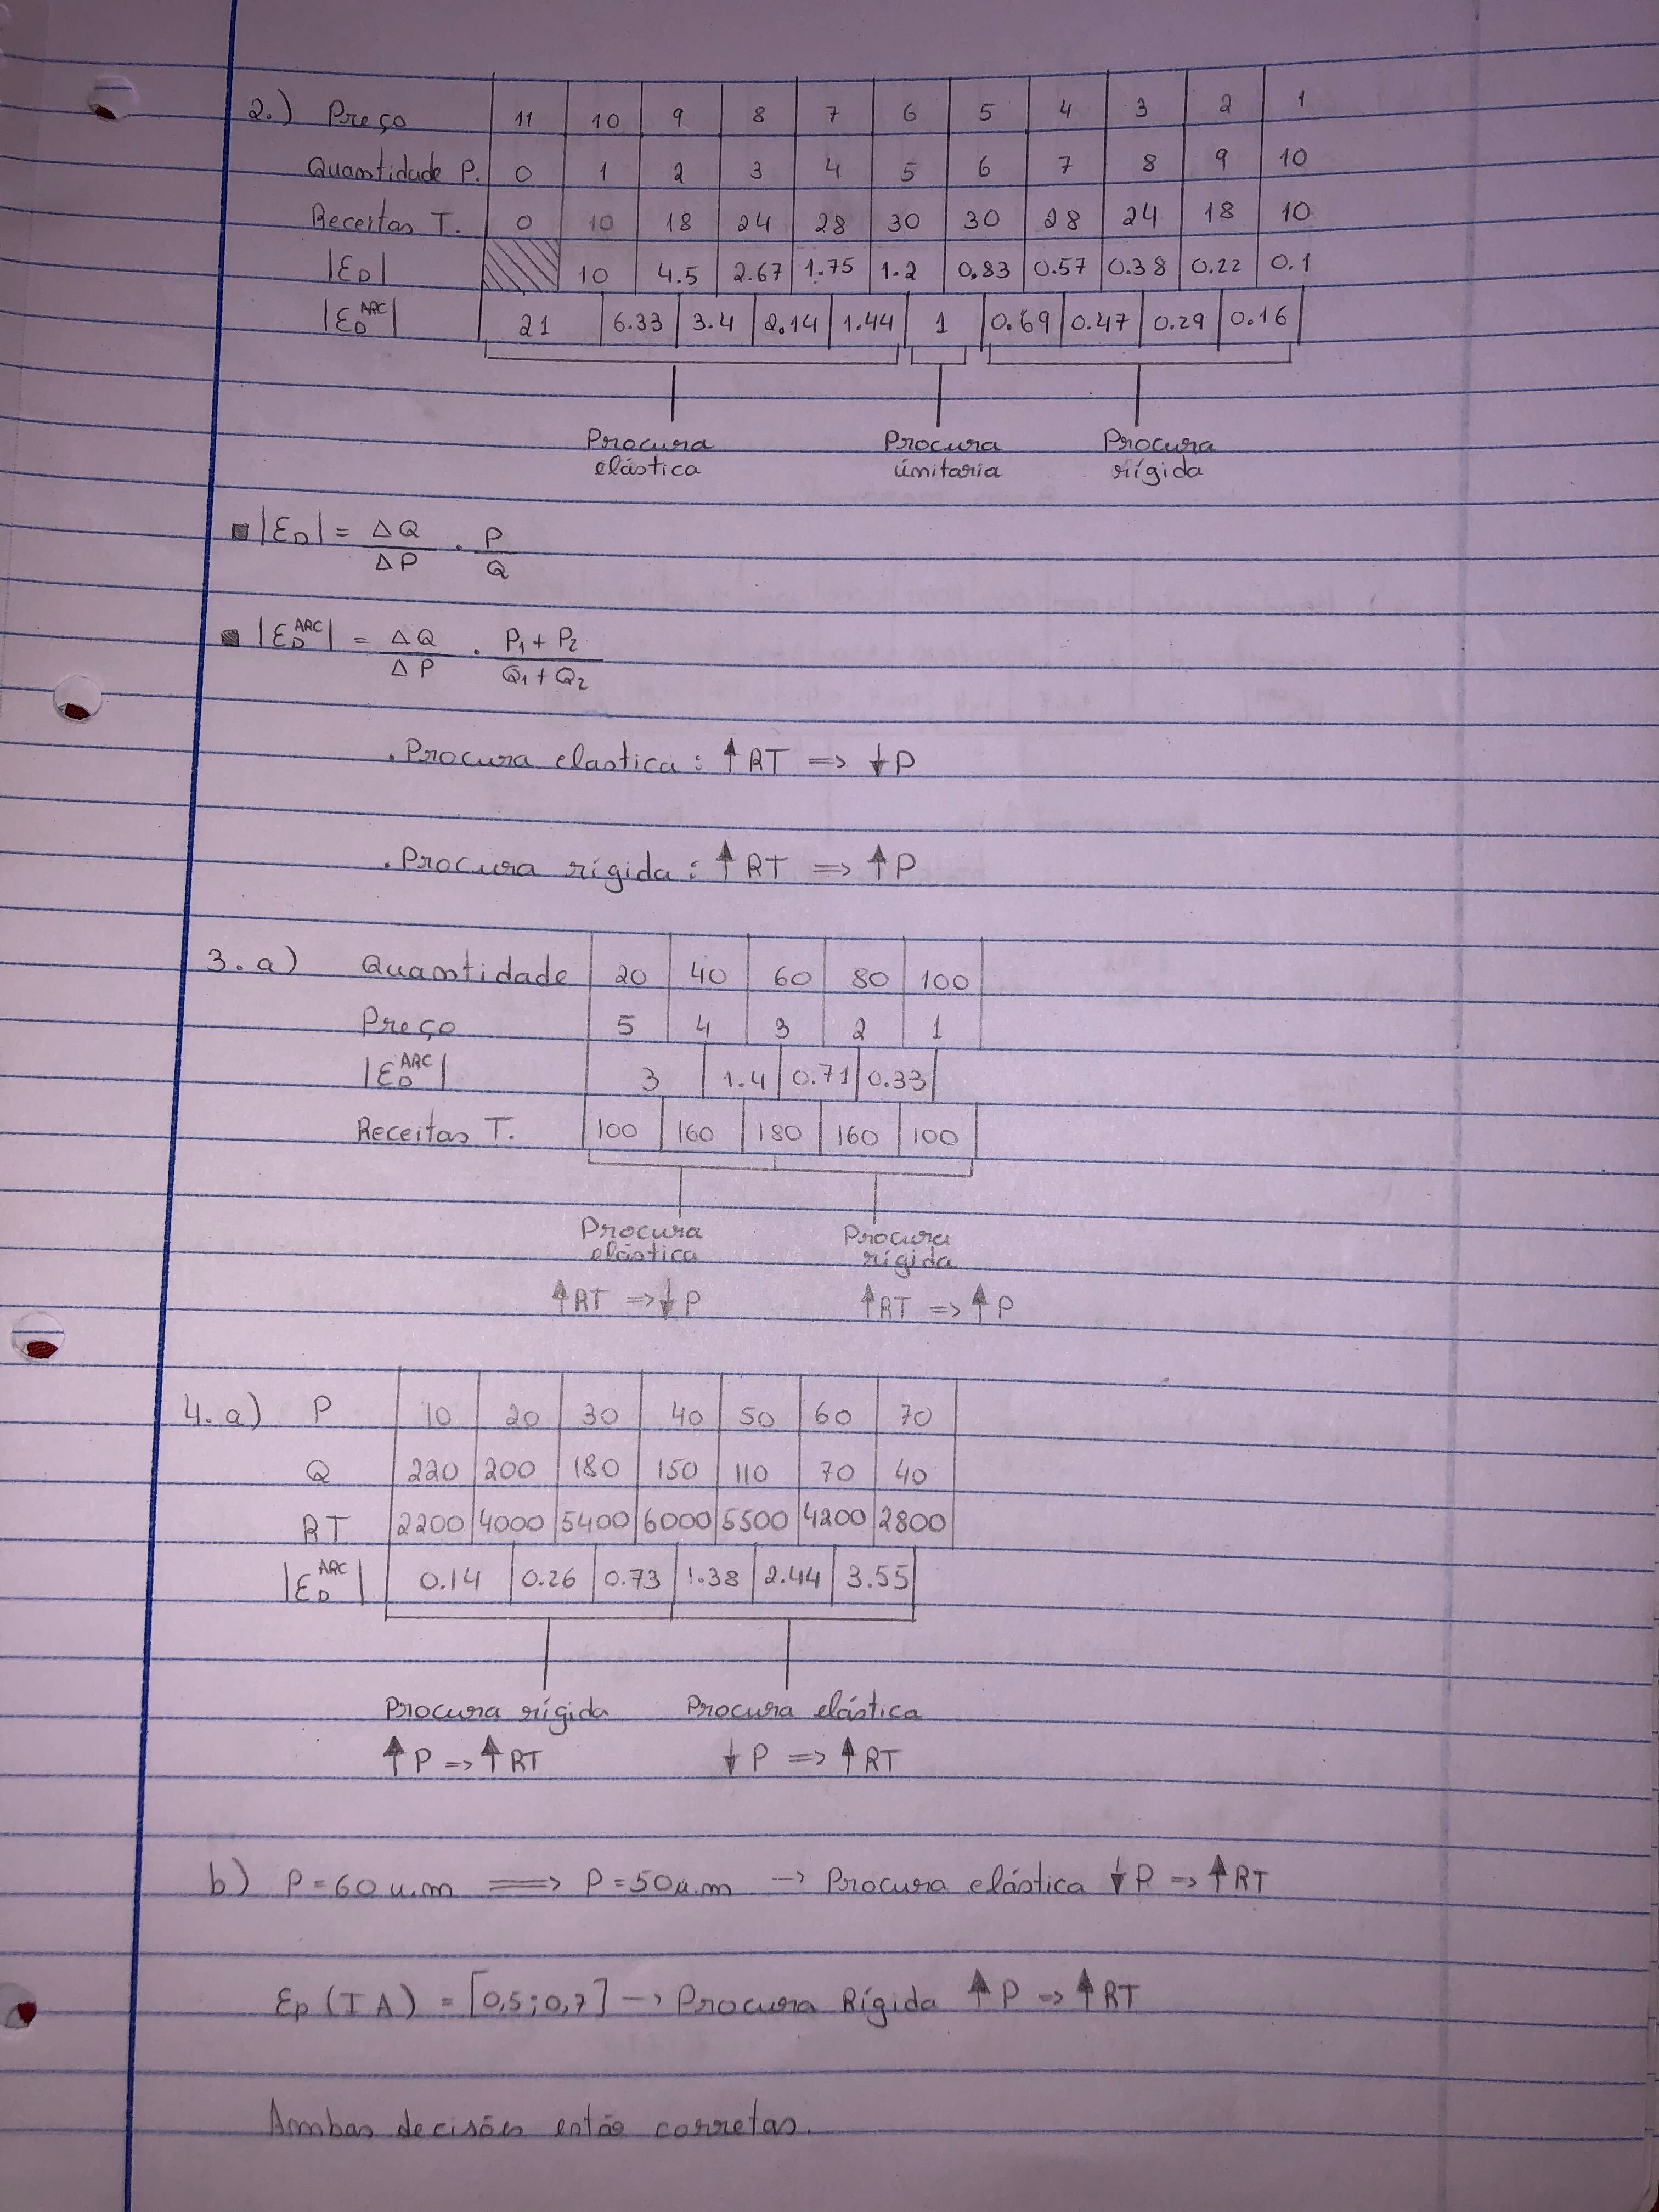 2.) Preço 11 10 9 8 7 6 5 4 3 2 1
Quantidade P. 0 1 2 3 4 5 6 7 8 9 10
Receitas T. 0 10 18 24 28 30 30 28 24 18 10
|ε_D| 10 4.5 2.67 1.75 1.2 0.83 0.57 0.38 0.22 0.1
|ε_D^ARC| 21 6.33 3.4 2.14 1.44 1 0.69 0.47 0.29 0.16
Procura elástica Procura únitaria Procura rígida
|ε_D| = ΔQ/ΔP . P/Q
|ε_D^ARC| = ΔQ/ΔP . (P₁ + P₂)/(Q₁ + Q₂)
. Procura elastica : ↑ RT => ↓ P
. Procura rígida : ↑ RT => ↑ P
3. a) Quantidade 20 40 60 80 100
Preço 5 4 3 2 1
|ε_D^ARC| 3 1.4 0.71 0.33
Receitas T. 100 160 180 160 100
Procura elástica Procura rígida
↑ RT => ↓ P ↑ RT => ↑ P
4. a) P 10 20 30 40 50 60 70
Q 220 200 180 150 110 70 40
RT 2200 4000 5400 6000 5500 4200 2800
|ε_D^ARC| 0.14 0.26 0.73 1.38 2.44 3.55
Procura rígida Procura elástica
↑ P => ↑ RT ↓ P => ↑ RT
b) P = 60 u.m => P = 50 u.m -> Procura elástica ↓ P => ↑ RT
Ep (I A) = [0,5 ; 0,7] -> Procura Rígida ↑ P => ↑ RT
Ambas decisões estão corretas.